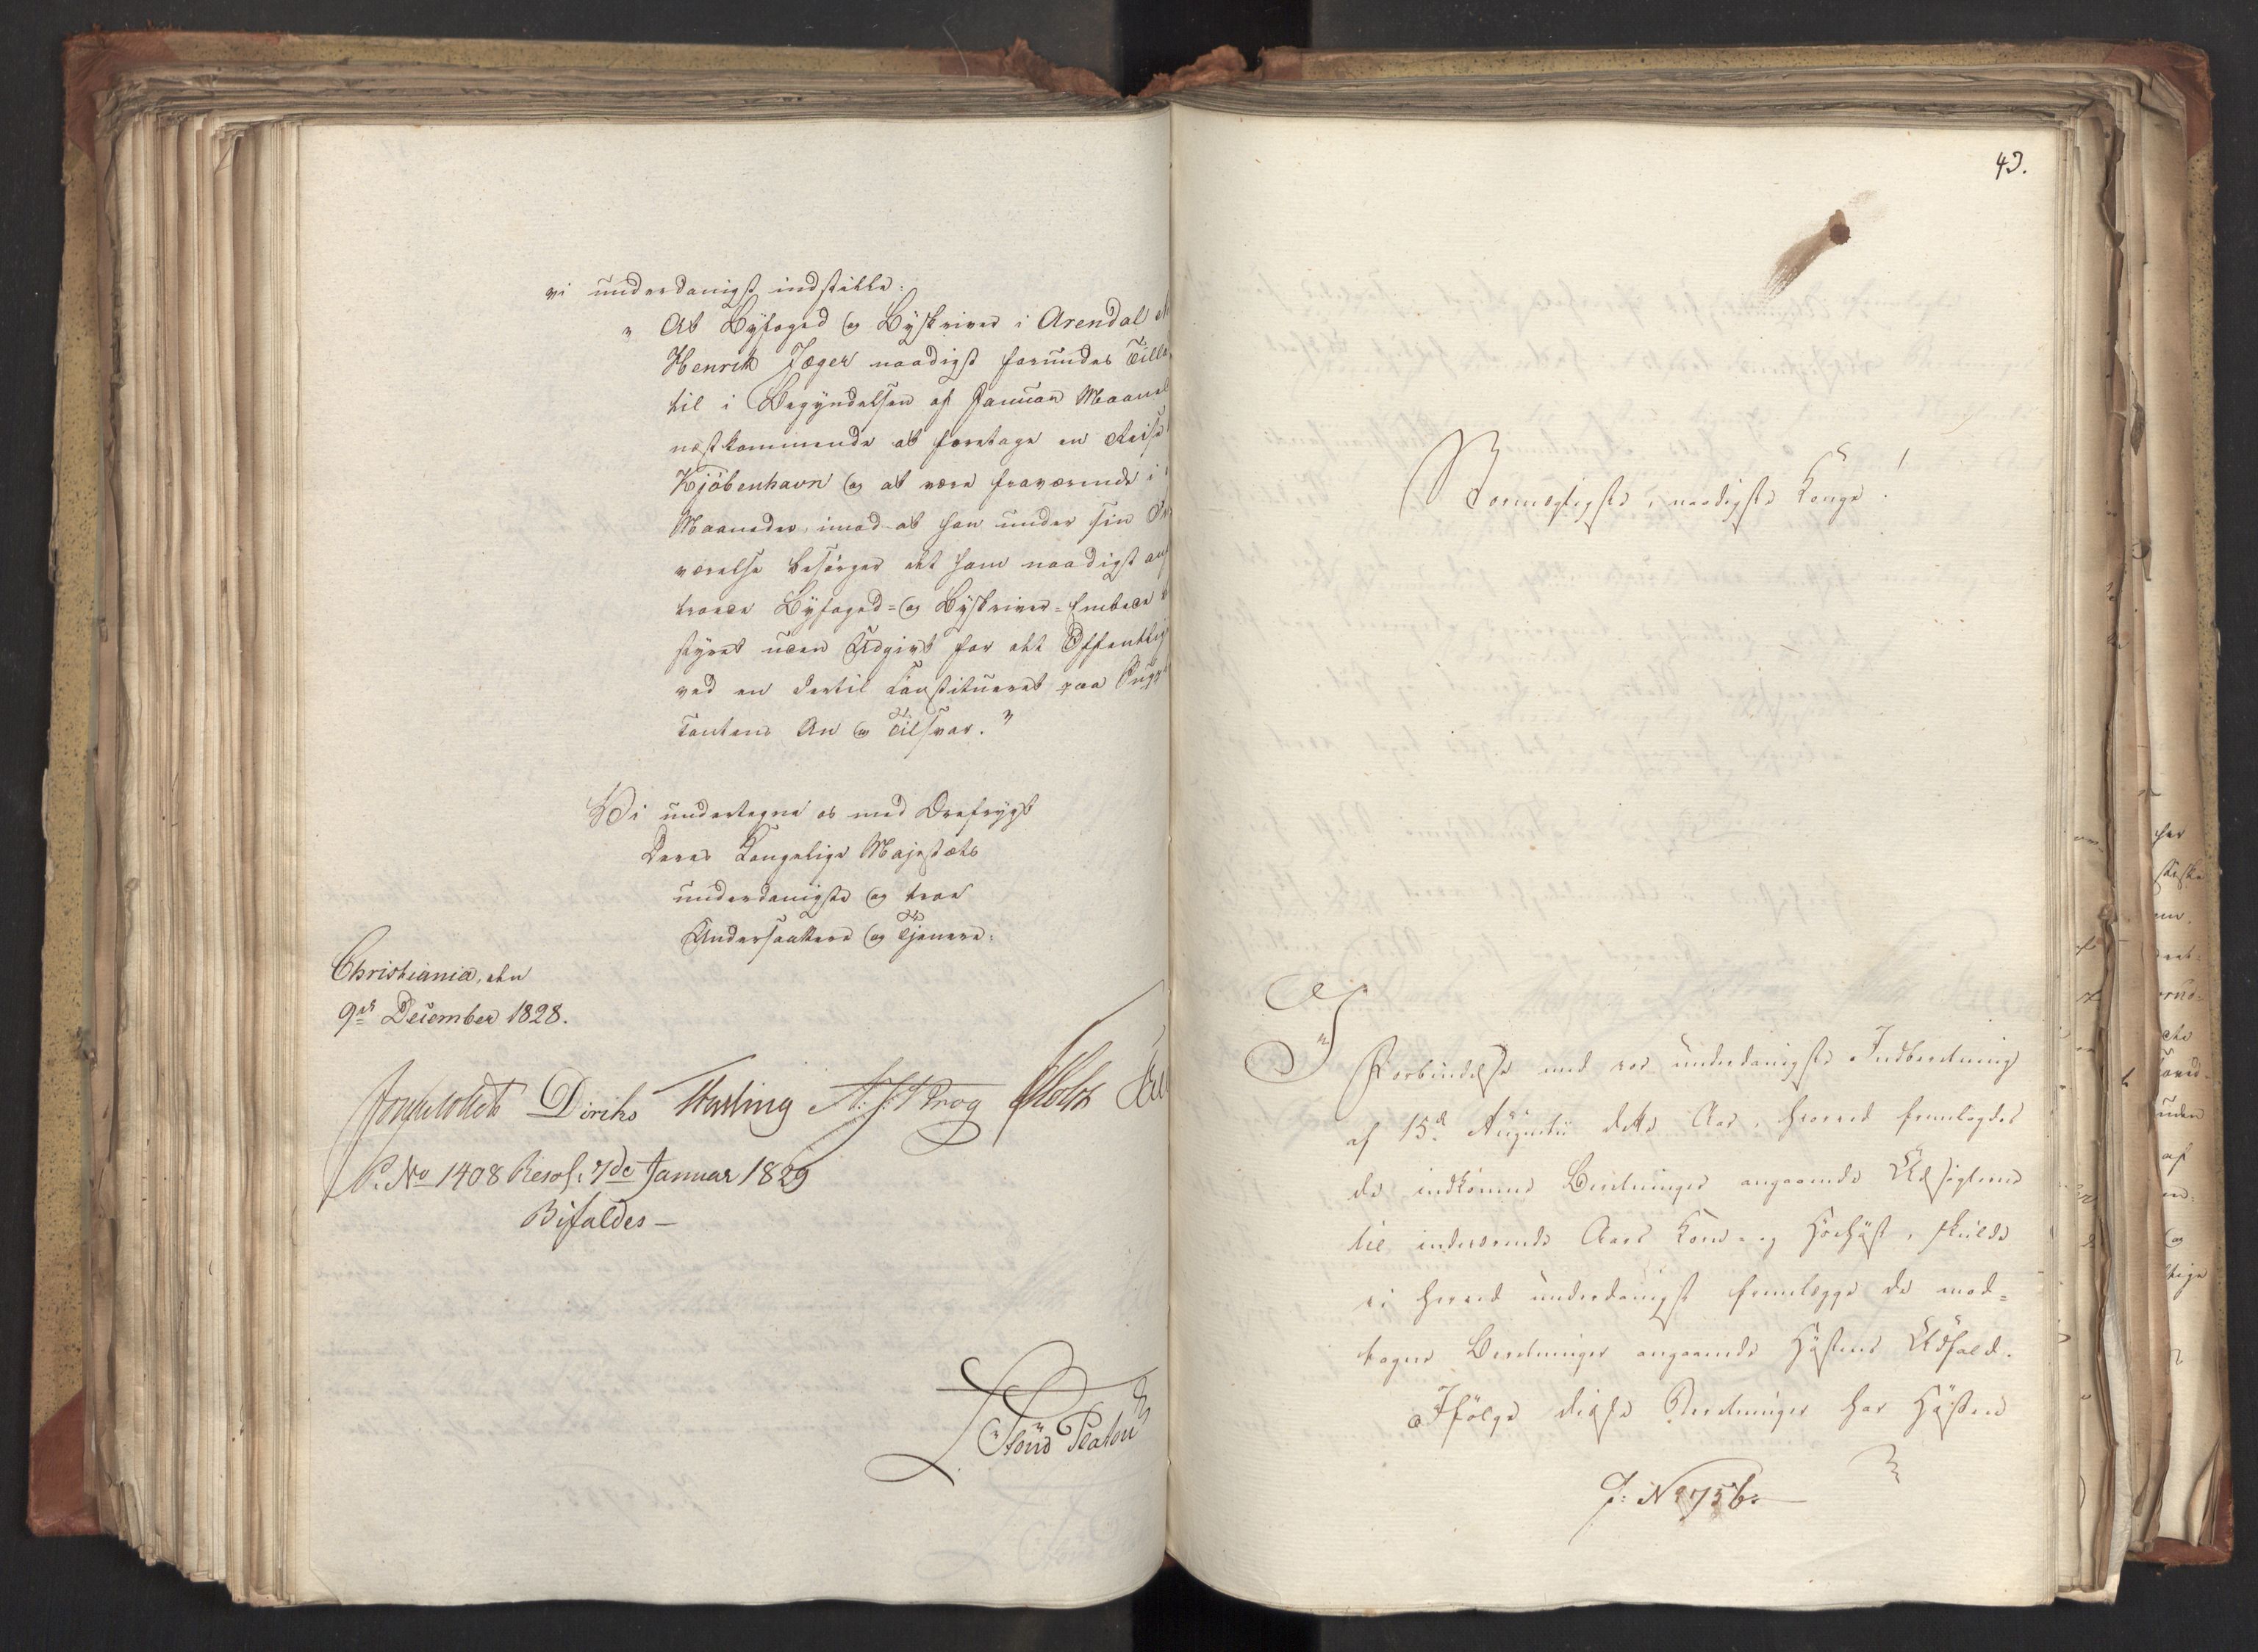 vi underdanigst indstille:
" At Byfoged og Byskriver i Arendal
Henrik Jæger naadigst forundes
til i Begyndelsen af Januar Maaned
næstkommende at foretage en Reise
Kjöbenhavn og at være fraværende i
Maaneder, imod at han under sin
værelse besörger det ham naadigst
troede Byfoged- og Byskriver-Embede
styret uden Udgivt for det Offentlige
ved en dertil Constitueret paa
cantens An og Tilsvar."
Vi undertegne os med Dyrefrygt
Deres Kongelige Majestæts
underdanigste og troe
Undersaatter og Tjenere:
Christiania, den
9de December 1828.
Diriks Krog Holst
P. No 1408 Resol: 7de Januar 1829
Bifaldes -
43.
Stormægtigste, naadigste Konge!
I
Forbindelse med vor underdanigste Indberetning
af 15de Augustii dette Aar, hvorved fremlagdes
de indkomne Beretninger angaaende Udsigterne
til indeværende Aars Korn- og Höehöst, skulde
vi herved underdanigst fremlægge de mod-
tagne Beretninger angaaende Höstens Udfald.
Ifölge disse Beretninger har Hösten
J: No 756.